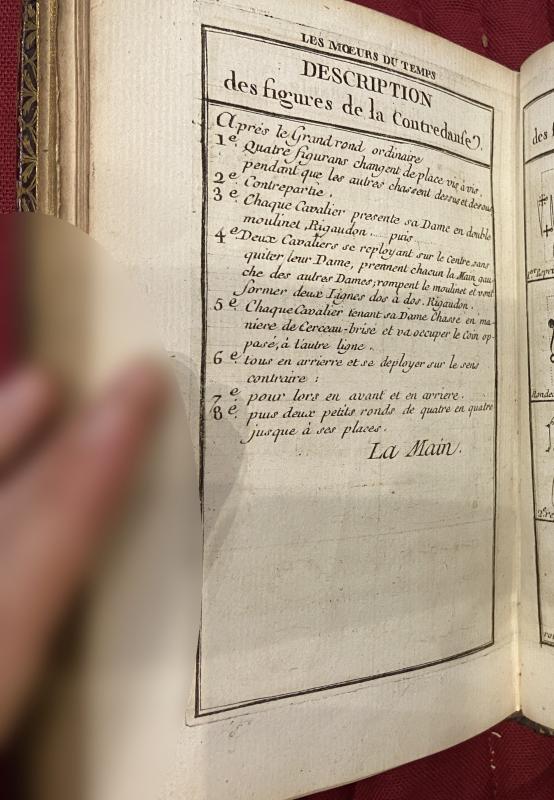 LES MŒURS DU TEMPS
DESCRIPTION
des figures de la Contredanse.
Après le Grand rond ordinaire
1e. Quatre figurans changent de place vis à vis,
pendant que les autres chassent dessus et dessous
2e. Contrepartie.
3e. Chaque Cavalier presente sa Dame en double
moulinet, Rigaudon.... puis
4e. Deux Cavaliers se reployant sur le Centre sans
quiter leur Dame, prennent chacun la Main gau-
che des autres Dames; rompent le moulinet et vont
former deux Lignes dos à dos. Rigaudon.
5e. Chaque Cavalier tenant sa Dame Chasse en ma-
niere de Cerceau-brisé et va occuper le Coin op-
posé, à l'autre ligne.
6e. tous en arrierre et se deployer sur le sens
contraire :
7e. pour lors en avant et en arriere.
8e. puis deux petits ronds de quatre en quatre
jusque à ses places.
La Main.
des